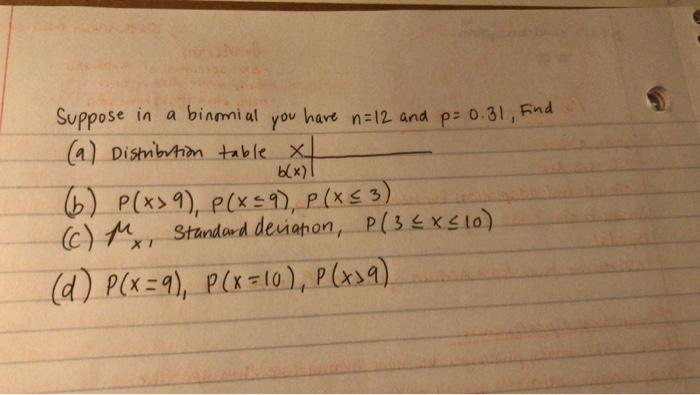 Suppose in a binomial you have n=12 and p= 0.31, Find
(a) Distribution table x
b(x)
(b) P(x>9), P(x≤9), P(x≤3)
(c) μx, Standard deviation, P(3≤x≤10)
(d) P(x=9), P(x=10), P(x>9)